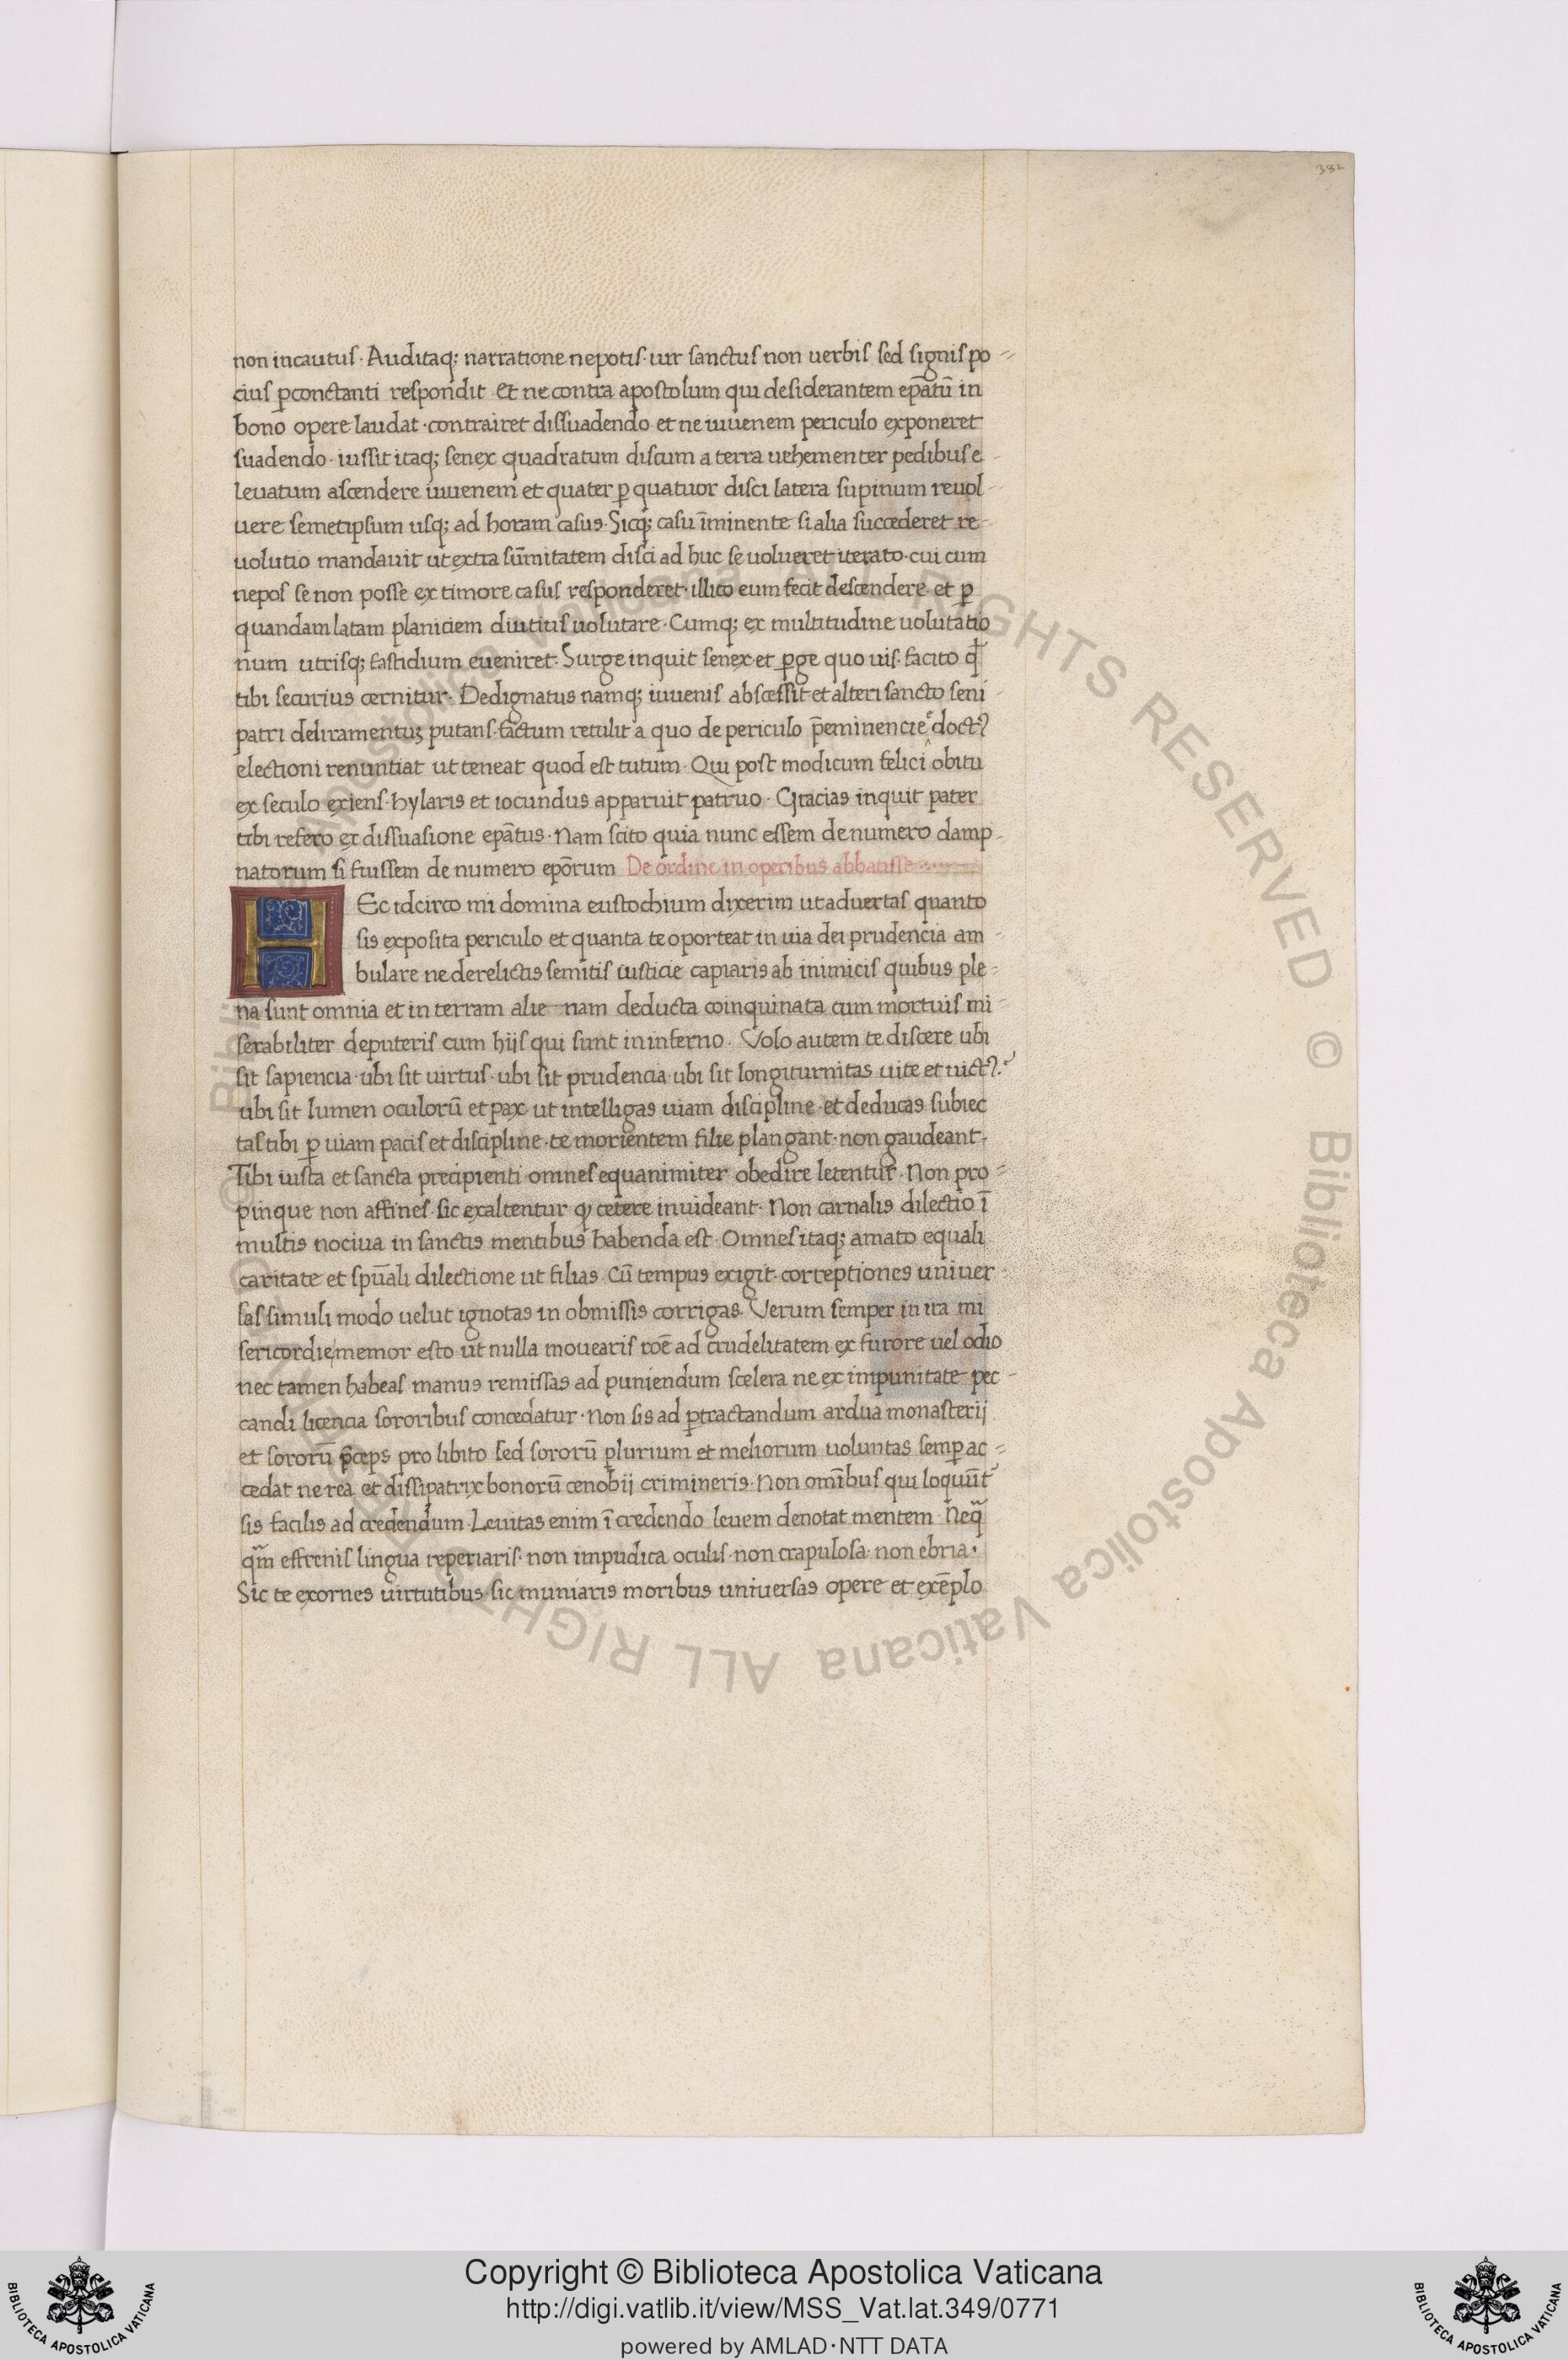 382
non incautus · Auditaq; narratione nepotis · uir sanctus non uerbis sed signis po
cius ꝑconctanti respondit · Et ne contra apostolum qui desiderantem ep̄atū in
bono opere laudat · contrairet dissuadendo et ne iuuenem periculo exponeret
suadendo · iussit itaq; senex quadratum discum a terra uehementer pedibus e
leuatum ascendere iuuenem et quater ꝑ quatuor disci latera supinum reuol
uere semetipsum usq; ad horam casus · Sicq; casu īminente si alia succederet re
uolutio mandauit ut extra sūmitatem disci ad huc se uolueret iterato · cui cum
nepos se non posse ex timore casus responderet · illico eum fecit descendere et ꝑ
quandam latam planiciem diutius uolutare · Cumq; ex multitudine uolutatio
num utrisq; fastidium eueniret · Surge inquit senex et ꝑge quo uis · facito ꝙ
tibi securius cernitur · Dedignatus namq; iuuenis abscessit et alteri sancto seni
patri deliramentuꝫ putans · factum retulit a quo de periculo p̄eminencie doctꝰ
electioni renuntiat ut teneat quod est tutum · Qui post modicum felici obitu
ex seculo exiens · hylaris et iocundus apparuit patruo · Gracias inquit pater
tibi refero ex dissuasione ep̄atus · Nam scito quia nunc essem de numero damp
natorum si fuissem de numero ep̄orum De ordine in operibus abbatisse
HEc idcirco mi domina eustochium dixerim ut aduertas quanto
sis exposita periculo et quanta te oporteat in uia dei prudencia am
bulare ne derelictis semitis iusticie capiaris ab inimicis quibus ple
na sunt omnia et in terram alie nam deducta coinquinata cum mortuis mi
serabiliter deputeris cum hijs qui sunt in inferno · Volo autem te discere ubi
sit sapiencia · ubi sit uirtus · ubi sit prudencia · ubi sit longiturnitas uite et uictꝰ ·
ubi sit lumen oculorū et pax · ut intelligas uiam discipline · et deducas subiec
tas tibi ꝑ uiam pacis et discipline · te morientem filie plangant · non gaudeant ·
Tibi iusta et sancta precipienti omnes equanimiter obedire letentur · Non pro
pinque non affines · sic exaltentur ꝙ cetere inuideant · Non carnalis dilectio ī
multis nociua in sanctis mentibus habenda est · Omnes itaq; amato equali
caritate et spūali dilectione ut filias · Cū tempus exigit · correptiones uniuer
sas simuli modo uelut ignotas in obmissis corrigas · Verum semper in ira mi
sericordie memor esto ut nulla mouearis roē ad crudelitatem ex furore uel odio
nec tamen habeas manus remissas ad puniendum scelera ne ex impunitate pec
candi licencia sororibus concedatur · Non sis ad ꝑtractandum ardua monasterij
et sororū p̄ceps pro libito sed sororū plurium et meliorum uoluntas semꝑ ac
cedat ne rea et dissipatrix bonorū cenobij crimineris · Non omībus qui loquūt
sis facilis ad credendum · Leuitas enim ī credendo leuem denotat mentem · Neq̄
qm̄ effrenis lingua reperiaris · non impudica oculis · non crapulosa · non ebria ·
Sic te exornes uirtutibus · sic muniaris moribus uniuersas opere et exēplo
Copyright © Biblioteca Apostolica Vaticana
http://digi.vatlib.it/view/MSS_Vat.lat.349/0771
powered by AMLAD·NTT DATA